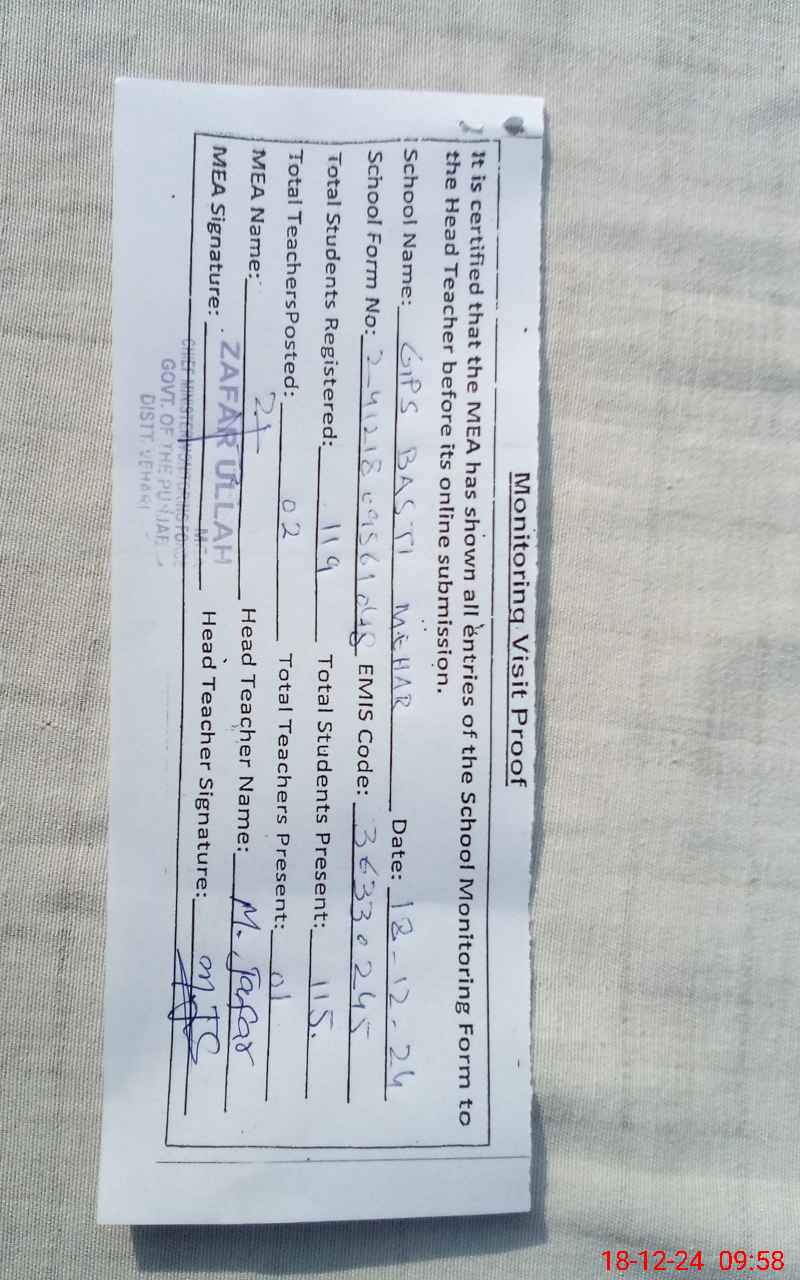 Monitoring Visit Proof
It is certified that the MEA has shown all entries of the School Monitoring Form to
the Head Teacher before its online submission.
School Name: GPS BASTI MAHAR Date: 18-12-24
School Form No: EMIS Code: 36330245
Total Students Registered: 119 Total Students Present: 115.
Total TeachersPosted: 02 Total Teachers Present: 01
MEA Name: Head Teacher Name: M. Jafar
MEA Signature: Head Teacher Signature:
ZAFAR ULLAH
CHIEF MINISTER MONITORING FORCE
GOVT. OF THE PUNJAB
DISTT. VEHARI
18-12-24 09:58